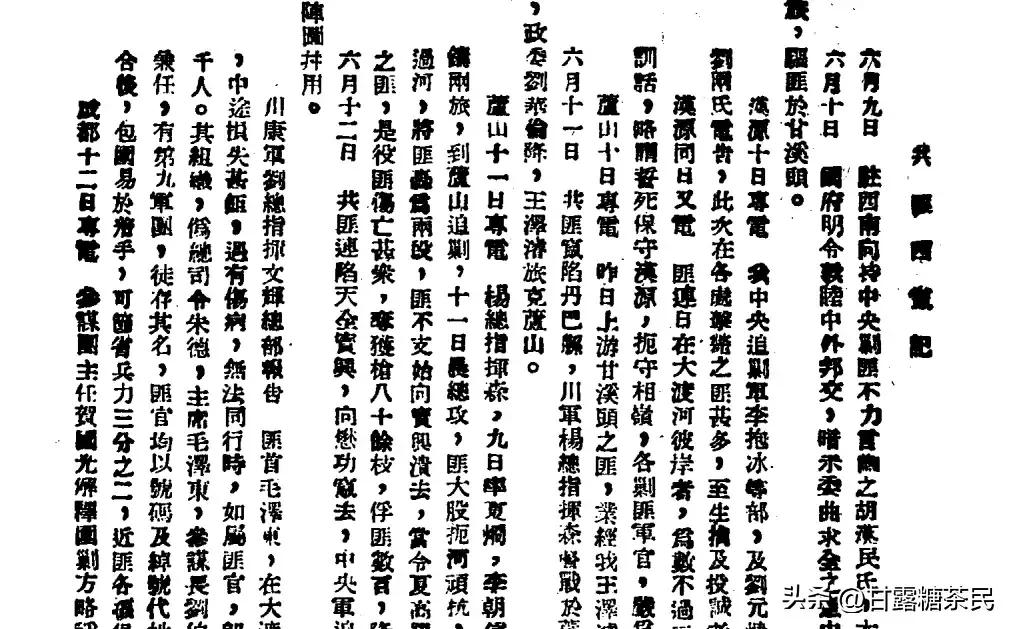 共匪西竄記
六月九日　駐西南向持中央剿匪不力言論之胡漢民氏，
六月十日　國府明令敦睦中外邦交，暗示委曲求全之
族，驅匪於甘溪頭。
漢源十日專電　我中央追剿軍李抱冰等部，及劉元
劉兩氏電告，此次在各處擊斃之匪甚多，至生擒及投誠
漢源同日又電　匪連日在大渡河彼岸者，為數不過
訓話，略謂誓死保守漢源，扼守相嶺，各剿匪軍官，
蘆山十日專電　昨日上游甘溪頭之匪，業經我王澤
六月十一日　共匪竄陷丹巴縣，川軍楊總指揮森督戰於蘆
，政委劉華倫降，王澤濬旅克蘆山。
蘆山十一日專電　楊總指揮森，九日率夏烱，李朝
兩旅，到蘆山追剿，十一日晨總攻，匪大股扼河頑抗，
過河，將匪截為兩段，匪不支始向寶興潰去，當令夏
之匪，是役匪傷亡甚衆，奪獲槍八十餘枝，俘匪數百，
六月十二日　共匪連陷天全寶興，向懋功竄去，中央軍追
陣圍井用。
川康軍劉總指揮文輝總部報告　匪首毛澤東，在大渡
，中途損失甚鉅，遇有傷病，無法同行時，如屬匪官，
千人。其組織，僞總司令朱德，主席毛澤東，參謀長劉伯
兼任，有第九軍團，徒存其名，匪官均以號碼及綽號代
合後，包圍易於着手，可節省兵力三分之二，近匪各
成都十二日專電　參謀團主任賀國光解釋圍剿方略
头条@甘露糖茶民